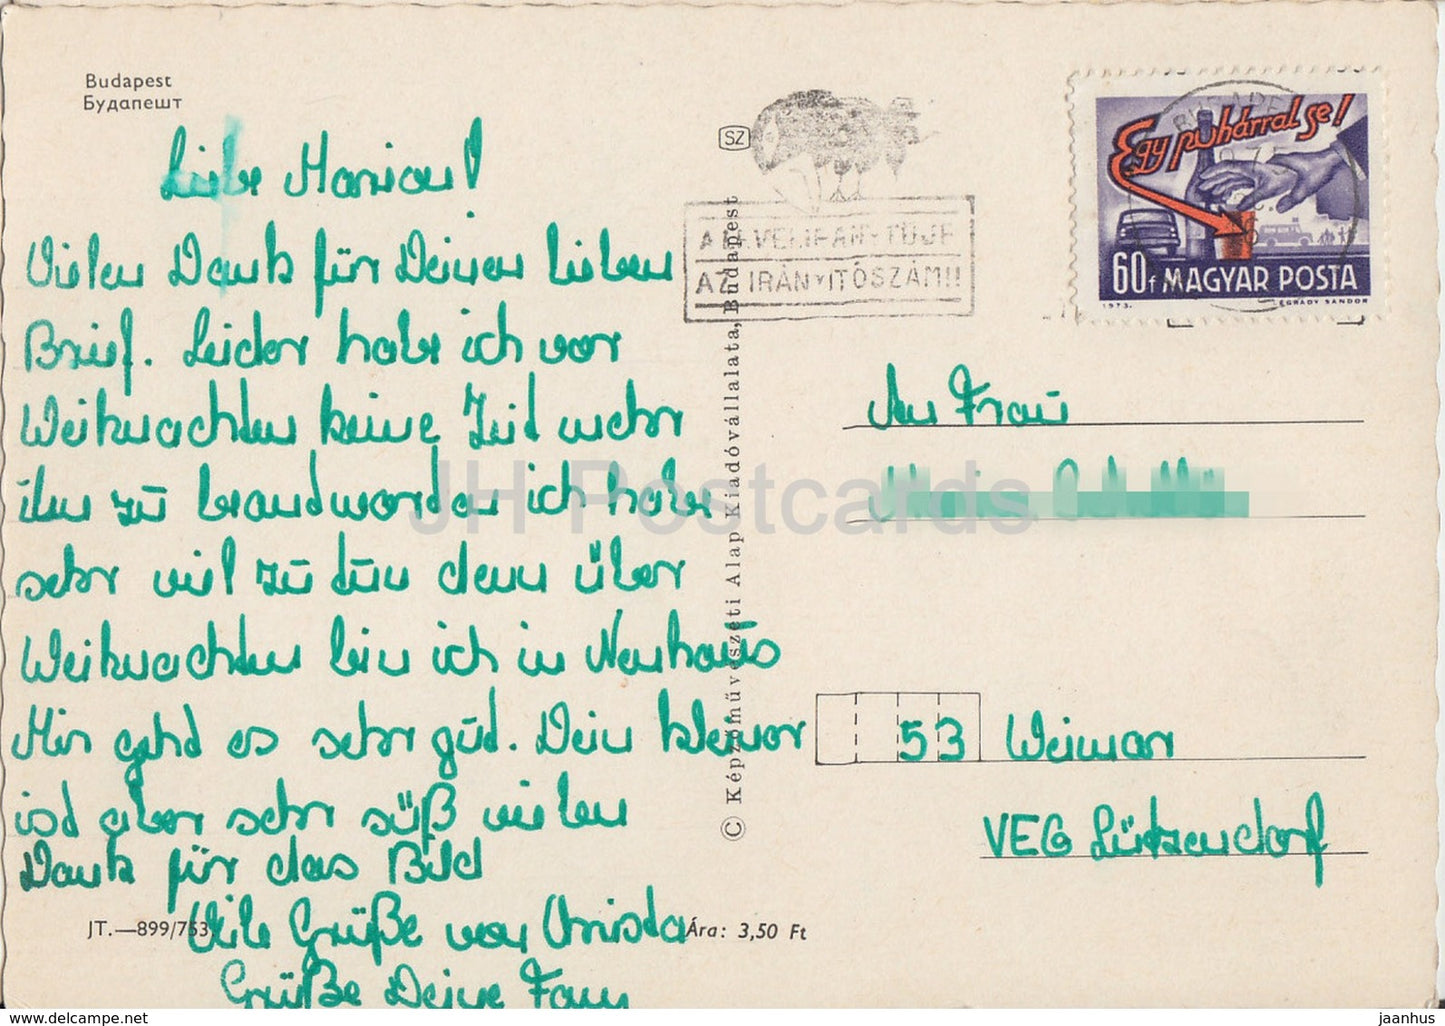 Budapest
Будапешт
SZ
A LEVÉL IRÁNYTŰJE
AZ IRÁNYÍTÓSZÁM!!
Egy pohárral se!
60f MAGYAR POSTA
1973. ÉGRÁDY SÁNDOR
Liebe
Vielen Dank für Deinen lieben
Brief. Leider habe ich vor
Weihnachten keine Zeid mehr
ihn zu beandworden ich habe
sehr viel zu tun denn über
Weihnachten bin ich in Neuhaus
Mir gehd es sehr gud. Dein kleiner
isd aber sehr süß vielen
Dank für das Bild
Viele Grüße von
Grüße Deine
JT.—899/753.
Ára: 3,50 Ft
© Képzőművészeti Alap Kiadóvállalata, Budapest
An Frau
53 Weimar
VEG Lützendorf
JH Postcards
www.delcampe.net
jaanhus